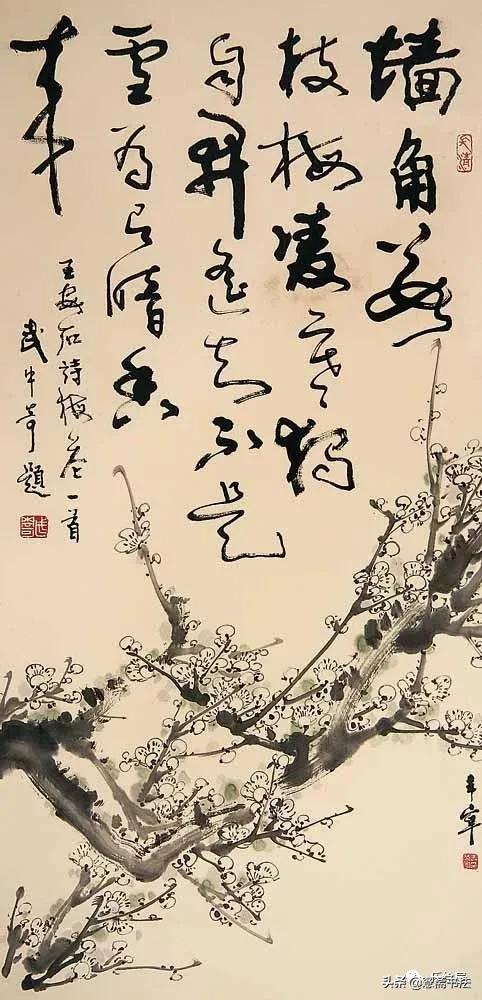 墙角数
枝梅凌寒独
自开遥知不是
雪为有暗香
来
王安石詩梅花一首
武中奇題
头条 斋书法